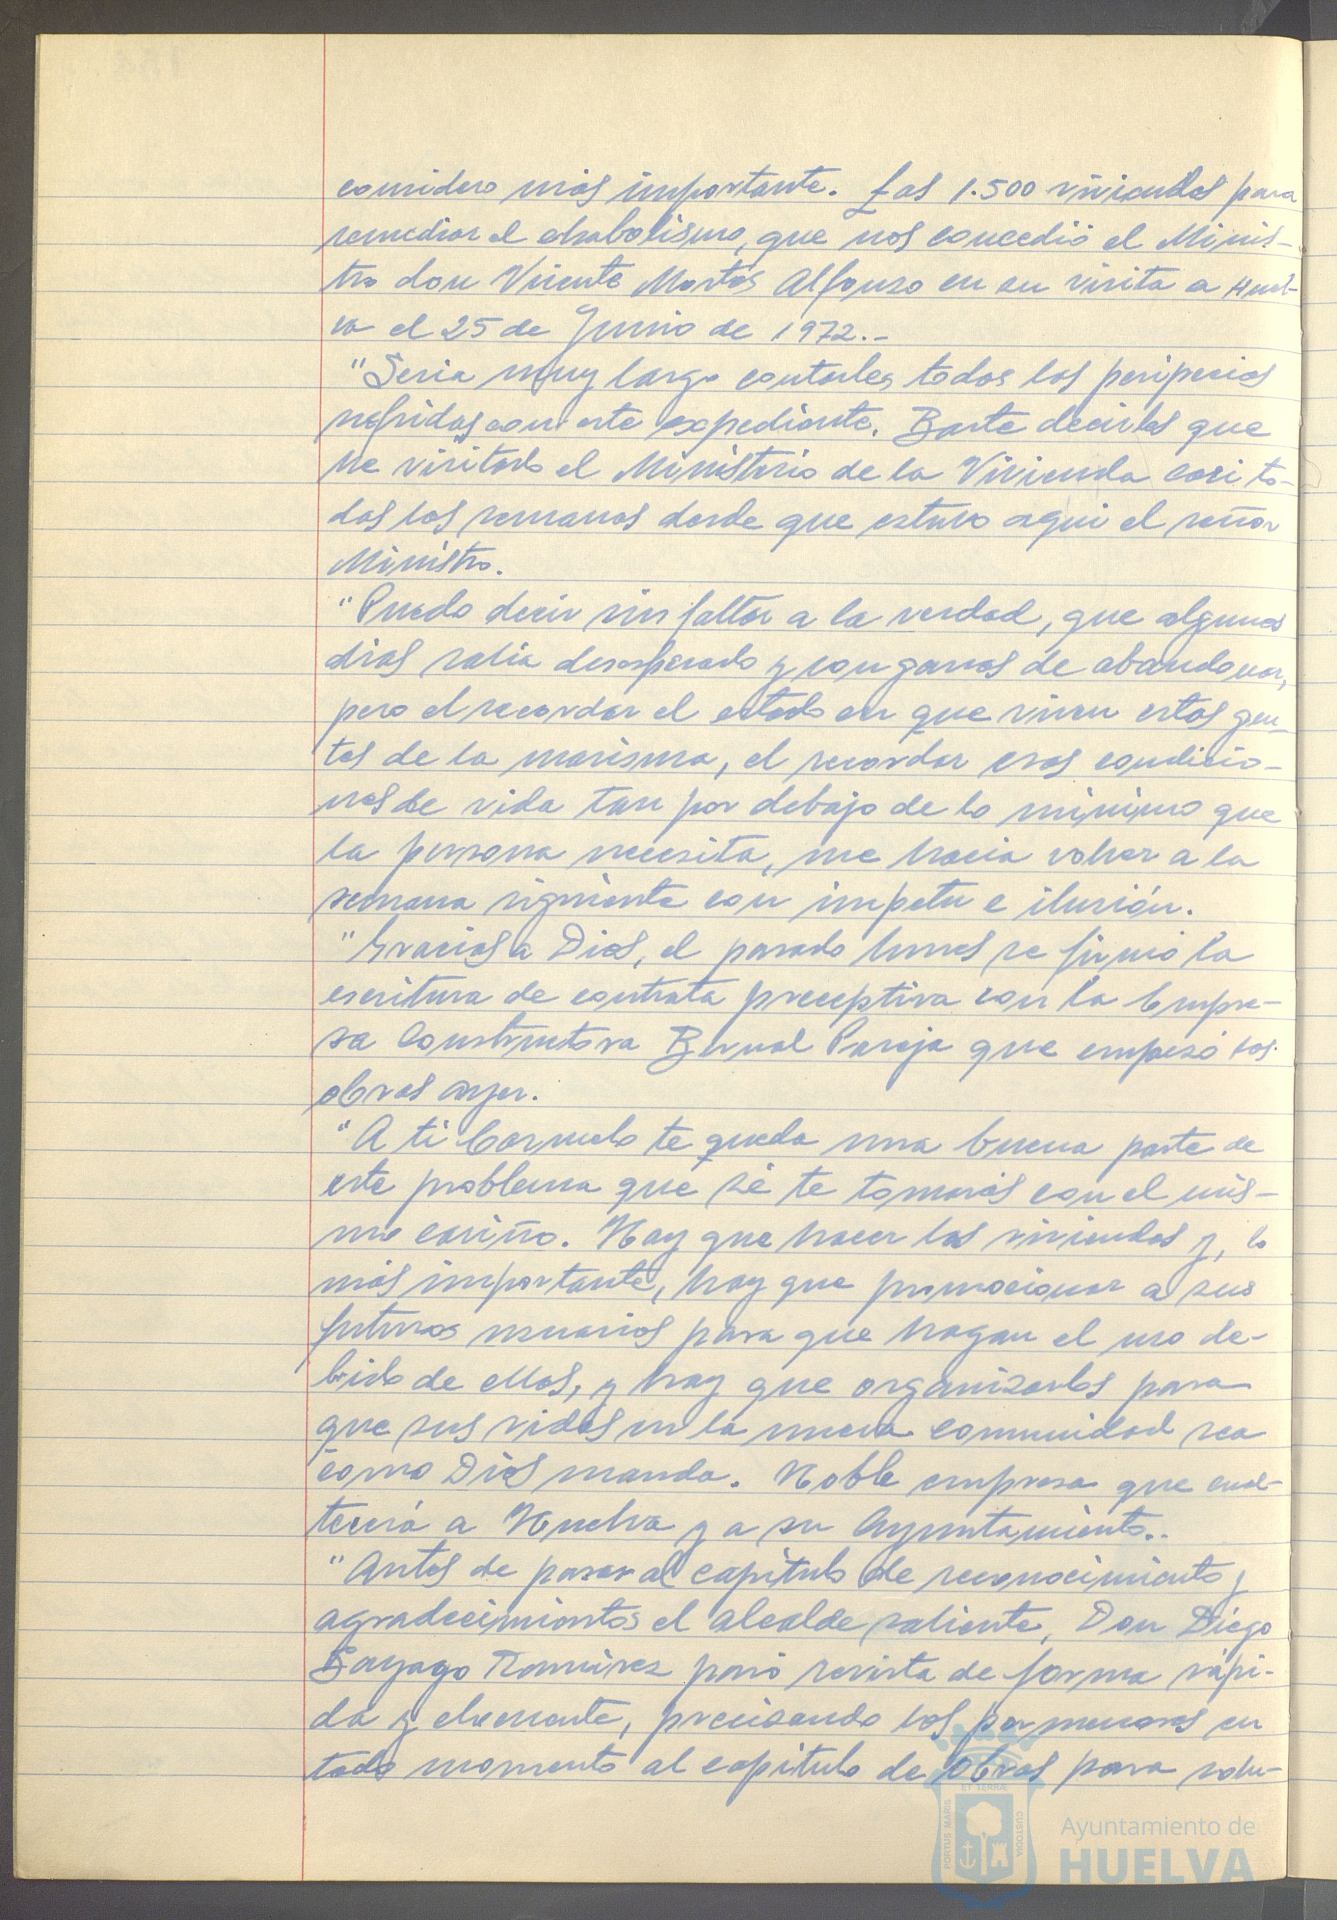 considero más importante. Las 1.500 viviendas para
remediar el chabolismo, que nos concedió el Minis-
tro don Vicente Mortes Alfonso en su visita a Huel-
va el 25 de Junio de 1972.-
"Seria muy largo contarles todas las peripecias
sufridas con este expediente. Baste decirles que
he visitado el Ministerio de la Vivienda casi to-
das las semanas desde que estuvo aqui el señor
Ministro.
"Puedo decir sin faltar a la verdad, que algunos
dias salia desesperado y con ganas de abandonar,
pero el recordar el estado en que viven estas gen-
tes de la marisma, el recordar esas condicio-
nes de vida tan por debajo de lo minimo que
la persona necesita, me hacia volver a la
semana siguiente con impetu e ilusión.
"Gracias a Dios, el pasado lunes se firmó la
escritura de contrata preceptiva con la Empre-
sa Constructora Bernal Pareja que empezó las
obras ayer.
"A ti Carmelo te queda una buena parte de
este problema que sé te tomarás con el mis-
mo cariño. Hay que hacer las viviendas y, lo
más importante, hay que promocionar a sus
futuros usuarios para que hagan el uso de-
bido de ellas, y hay que organizarlos para
que sus vidas en la nueva comunidad sea
como Dios manda. Noble empresa que enal-
tecerá a Huelva y a su Ayuntamiento..
"Antes de pasar al capitulo de reconocimiento y
agradecimientos el alcalde saliente, Don Diego
Sayago Ramírez pasó revista de forma rápi-
da y elocuente, precisando los pormenores en
todo momento al capitulo de Obras para solu-
PORTUS MARIS
ET TERRAE
CUSTODIA
Ayuntamiento de
HUELVA